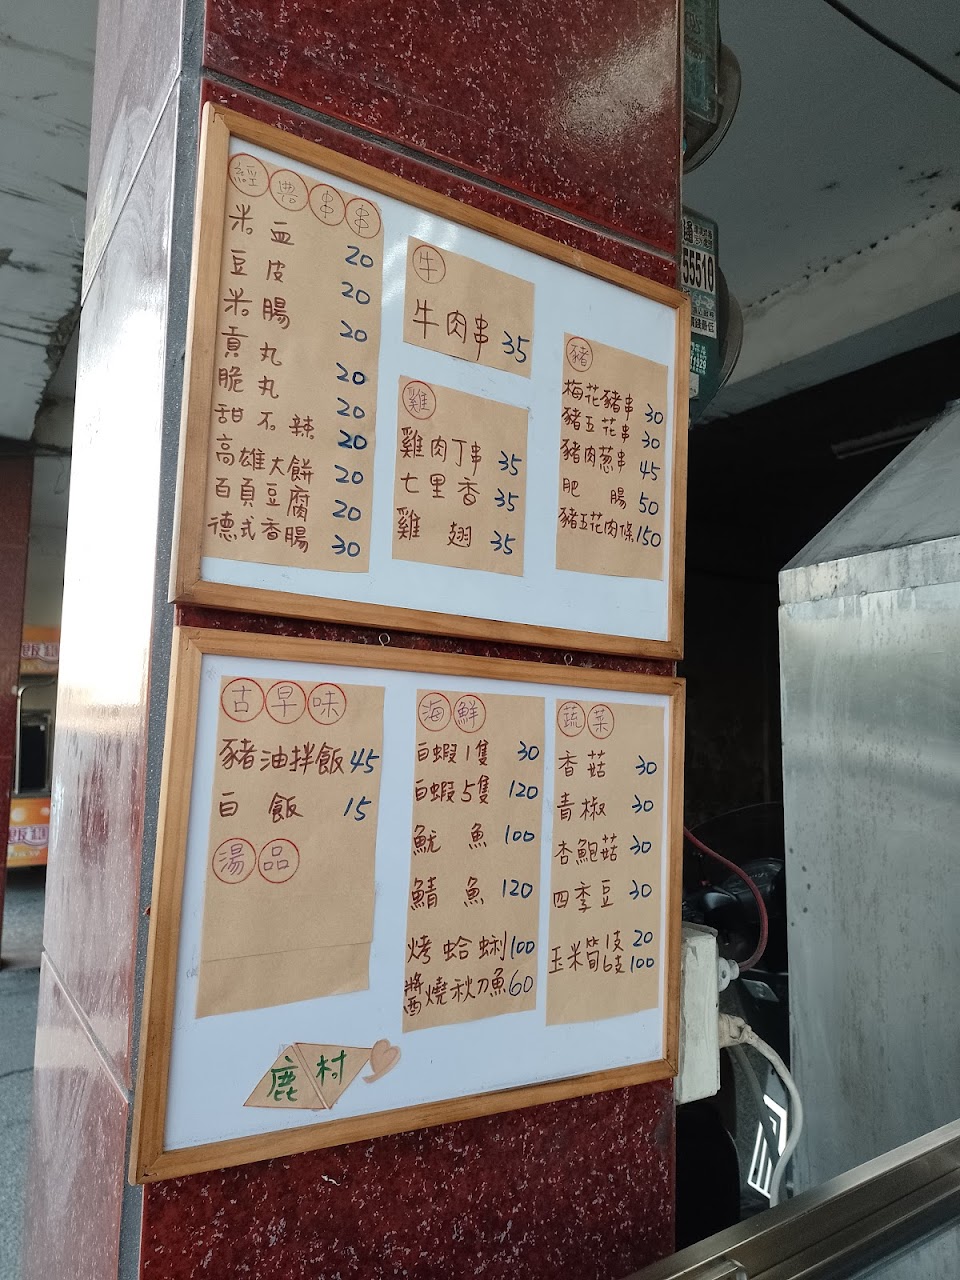 經典串串
米血 20
豆皮 20
米腸 20
貢丸 20
脆丸 20
甜不辣 20
高雄大餅 20
百頁豆腐 20
德式香腸 30
牛
牛肉串 35
雞
雞肉丁串 35
七里香 35
雞翅 35
豬
梅花豬串 30
豬五花串 30
豬肉蔥串 45
肥腸 50
豬五花肉條 150
古早味
豬油拌飯 45
白飯 15
湯品
海鮮
白蝦1隻 30
白蝦5隻 120
魷魚 100
鯖魚 120
烤蛤蜊 100
醬燒秋刀魚 60
蔬菜
香菇 30
青椒 30
杏鮑菇 30
四季豆 30
玉米筍 1支 20
6支 100
鹿村
55510